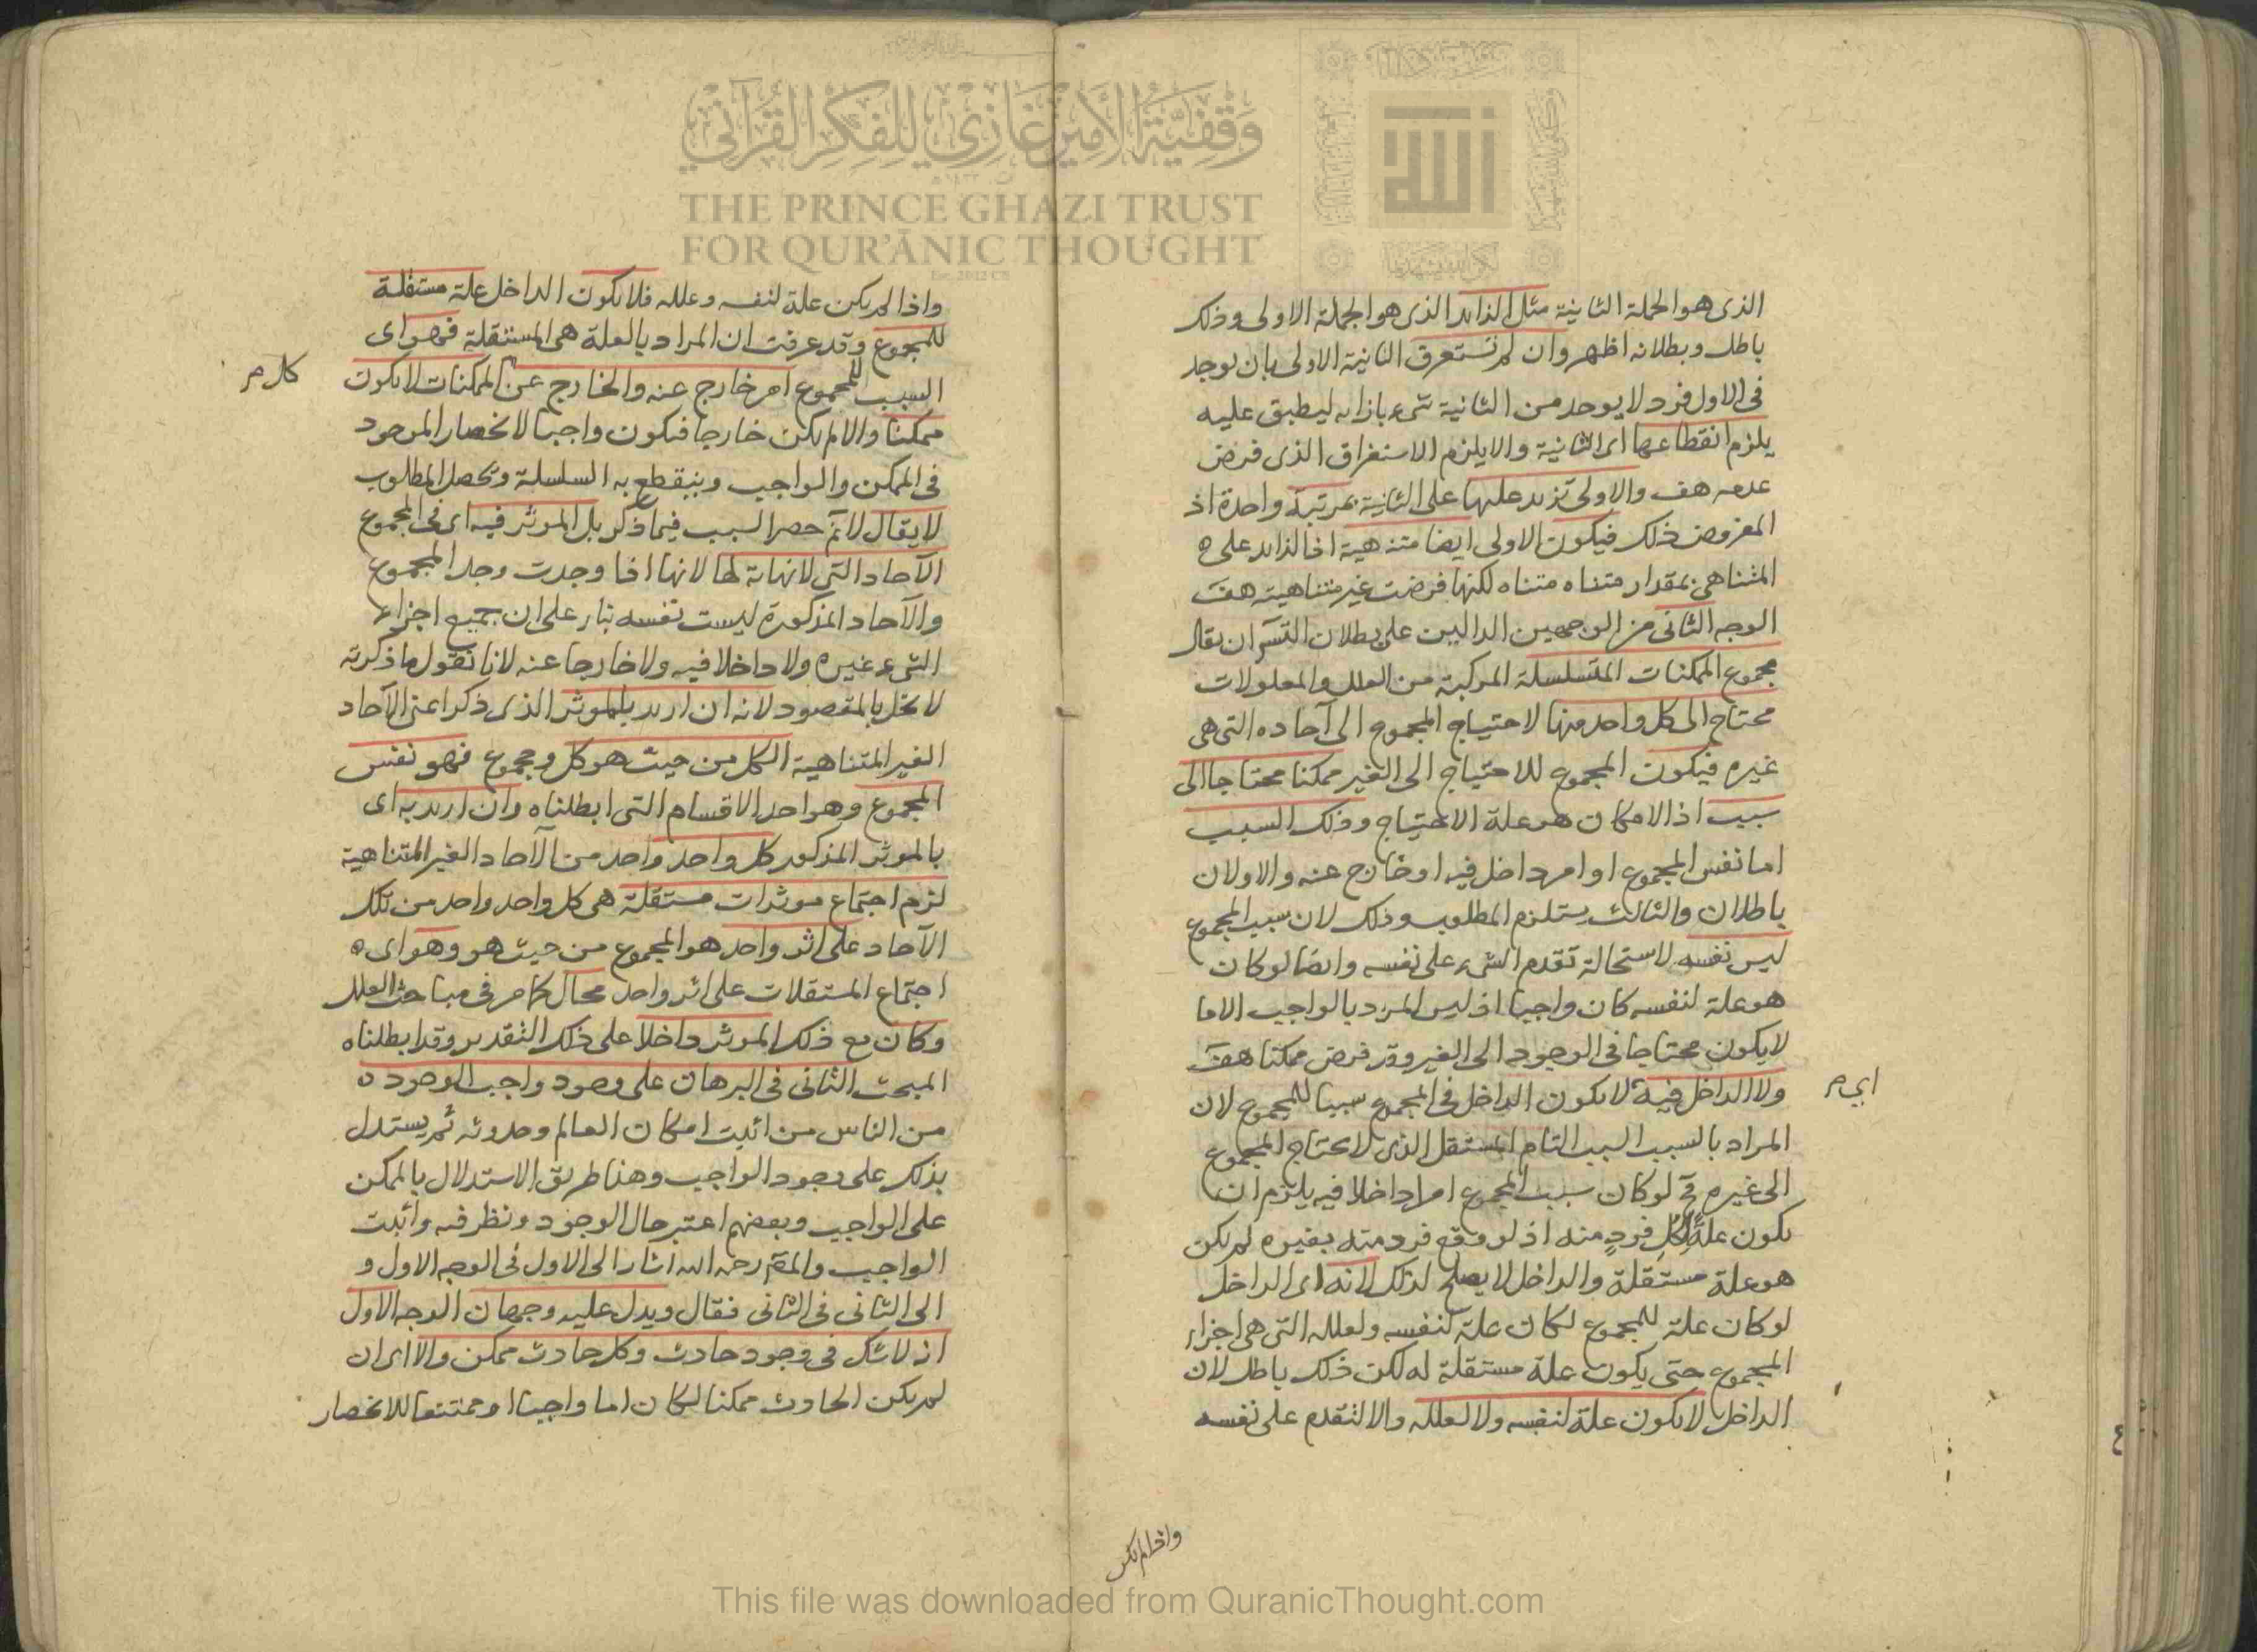 وقفية الأمير غازي للفكر القرآني
THE PRINCE GHAZI TRUST
FOR QUR'ĀNIC THOUGHT
الله
الذى هو الجملة الثانية مثل الزايد الذى هو الجملة الاولى وذلك
باطل وبطلانه اظهر وان لم تستغرق الثانية الاولى بان يوجد
فى الاول فرد لا يوجد من الثانية شىء بازايه ليطبق عليه
يلزم انقطاعها اى الثانية والا يلزم الاستغراق الذى فرض
عدمه هف والاولى تزيد عليها على الثانية بمرتبة واحدة اذ
المفروض ذلك فيكون الاولى ايضا متنهية اذ الزايد على ه
المتناهى بمقدار متناه متناه لكنها فرضت غير متناهية هف
الوجه الثانى من الوجهين الدالين على بطلان التس ان يقال
مجموع الممكنات المتسلسلة المركبة من العلل والمعلولات
محتاج الى كل واحد منها لاحتياج المجموع الى آحاده التى هى
غيره فيكون المجموع للاحتياج الى الغير ممكنا محتاجا الى
سبب اذ الامكان هو علة الاحتياج وذلك السبب
اما نفس المجموع او امر داخل فيه او خارج عنه والاولان
باطلان والثالث يستلزم المطلوب وذلك لان سبب المجموع
ليس نفسه لاستحالة تقدم الشىء على نفسه وايضا لو كان
هو علة لنفسه كان واجبا اذ ليس المرد بالواجب الا ما
لا يكون محتاجا فى الوجود الى الغير وقد فرض ممكنا هف
ولا الداخل فيه لا يكون الداخل فى المجموع سببا للمجموع لان
اى م
المراد بالسبب السبب التام المستقل الذى لا يحتاج المجموع
الى غيره فح لو كان سبب المجموع امرا داخلا فيه يلزم ان
يكون علةً لكل فردٍ منه اذ لو وقع فرد منه بغيره لم يكن
هو علة مستقلة والداخل لا يصلح لذلك لانه اى الداخل
لو كان علة للمجموع لكان علة لنفسه ولعلله التى هى اجزاء
المجموع حتى يكون علة مستقلة له لكن ذلك باطل لان
الداخل لا يكون علة لنفسه ولا لعلله والا لتقدم على نفسه
واذا لم يكن
واذا لم يكن علة لنفسه وعلله فلا يكون الداخل علة مستقلة
للمجموع وقد عرفت ان المراد بالعلة هى المستقلة فهو اى
السبب للمجموع امر خارج عنه والخارج عن الممكنات لا يكون
كل م
ممكنا والا لم يكن خارجا فيكون واجبا لانحصار الموجود
فى الممكن والواجب وينقطع به السلسلة ويحصل المطلوب
لا يقال لا نم حصر السبب فيما ذكر بل الموثر فيه اى فى المجموع
الآحاد التى لا نهاية لها لانها اذا وجدت وجد المجموع
والآحاد المذكورة ليست نفسه بناء على ان جميع اجزاء
الشىء غيره ولا داخلا فيه ولا خارجا عنه لانا نقول ما ذكرته
لا يخل بالمقصود لانه ان اريد بالموثر الذى ذكر اعنى الآحاد
الغير المتناهية الكل من حيث هو كل ومجموع فهو نفس
المجموع وهو احد الاقسام التى ابطلناه وان اريد به اى
بالموثر المذكور كل واحد واحد من الآحاد الغير المتناهية
لزم اجتماع موثرات مستقلة هى كل واحد واحد من تلك
الآحاد على اثر واحد هو المجموع من حيث هو وهو اى ه
اجتماع المستقلات على اثر واحد محال كما مر فى مباحث العلل
وكان مع ذلك الموثر داخلا على ذلك التقدير وقد ابطلناه
المبحث الثانى فى البرهان على وجود واجب الوجود ه
من الناس من اثبت امكان العالم وحدوثه ثم يستدل
بذلك على وجود الواجب وهذا طريق الاستدلال بالممكن
على الواجب وبعضهم اعتبر حال الوجود ونظر فيه واثبت
الواجب والمص رحمه الله اشار الى الاول فى الوجه الاول و
الى الثانى فى الثانى فقال ويدل عليه وجهان الوجه الاول
انه لا شك فى وجود حادث وكل حادث ممكن والا اى ان
لم يكن الحادث ممكنا لكان اما واجبا او ممتنعا للانحصار
This file was downloaded from QuranicThought.com